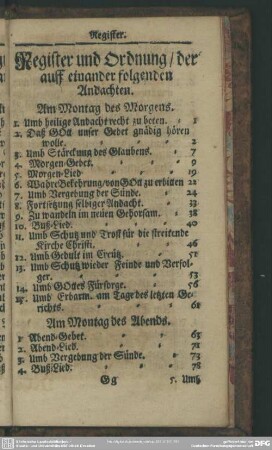 Register.
Register und Ordnung / der
auff einander folgenden
Andachten.
Am Montag des Morgens.
1. Umb heilige Andacht recht zu beten. 1
2. Daß GOtt unser Gebet gnädig hören
wolle. 2
3. Umb Stärckung des Glaubens. 7
4. Morgen-Gebet. 9
5. Morgen-Lied 19
6. Wahre Bekehrung / von GOtt zu erbitten 22
7. Umb Vergebung der Sünde. 24
8. Fortsetzung selbiger Andacht. 33
9. Zu wandeln im neuen Gehorsam. 38
10. Buß-Lied. 40
11. Umb Schutz und Trost für die streitende
Kirche Christi. 46
12. Umb Gedult im Creutz. 51
13. Umb Schutz wieder Feinde und Verfol-
ger. 53
14. Umb GOttes Fürsorge. 56
15. Umb Erbarm. am Tage des letzten Ge-
richts. 61
Am Montag des Abends.
1. Abend-Gebet. 65
2. Abend-Lied. 71
3. Umb Vergebung der Sünde. 73
4. Buß-Lied. 78
Gg 5. Umb